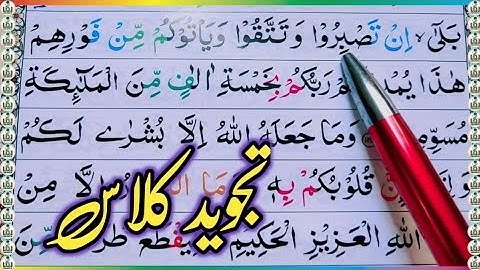 بَلٰٓى ۙ اِنْ تَصْبِرُوْا وَتَتَّقُوْا وَيَاْتُوْكُمْ مِّنْ فَوْرِهِمْ
هٰذَا يُمْدِ مْ رَبُّكُمْ بِخَمْسَةِ اٰلٰفٍ مِّنَ الْمَلٰٓئِكَةِ
مُسَوِّمِ وَمَا جَعَلَهُ اللّٰهُ اِلَّا بُشْرٰى لَكُمْ
قُلُوْبُكُمْ بِهٖ وَمَا اِلَّا مِنْ
اللّٰهِ الْعَزِيْزِ الْحَكِيْمِ يَقْطَعَ طَرَ مِّنَ
تجوید کلاس